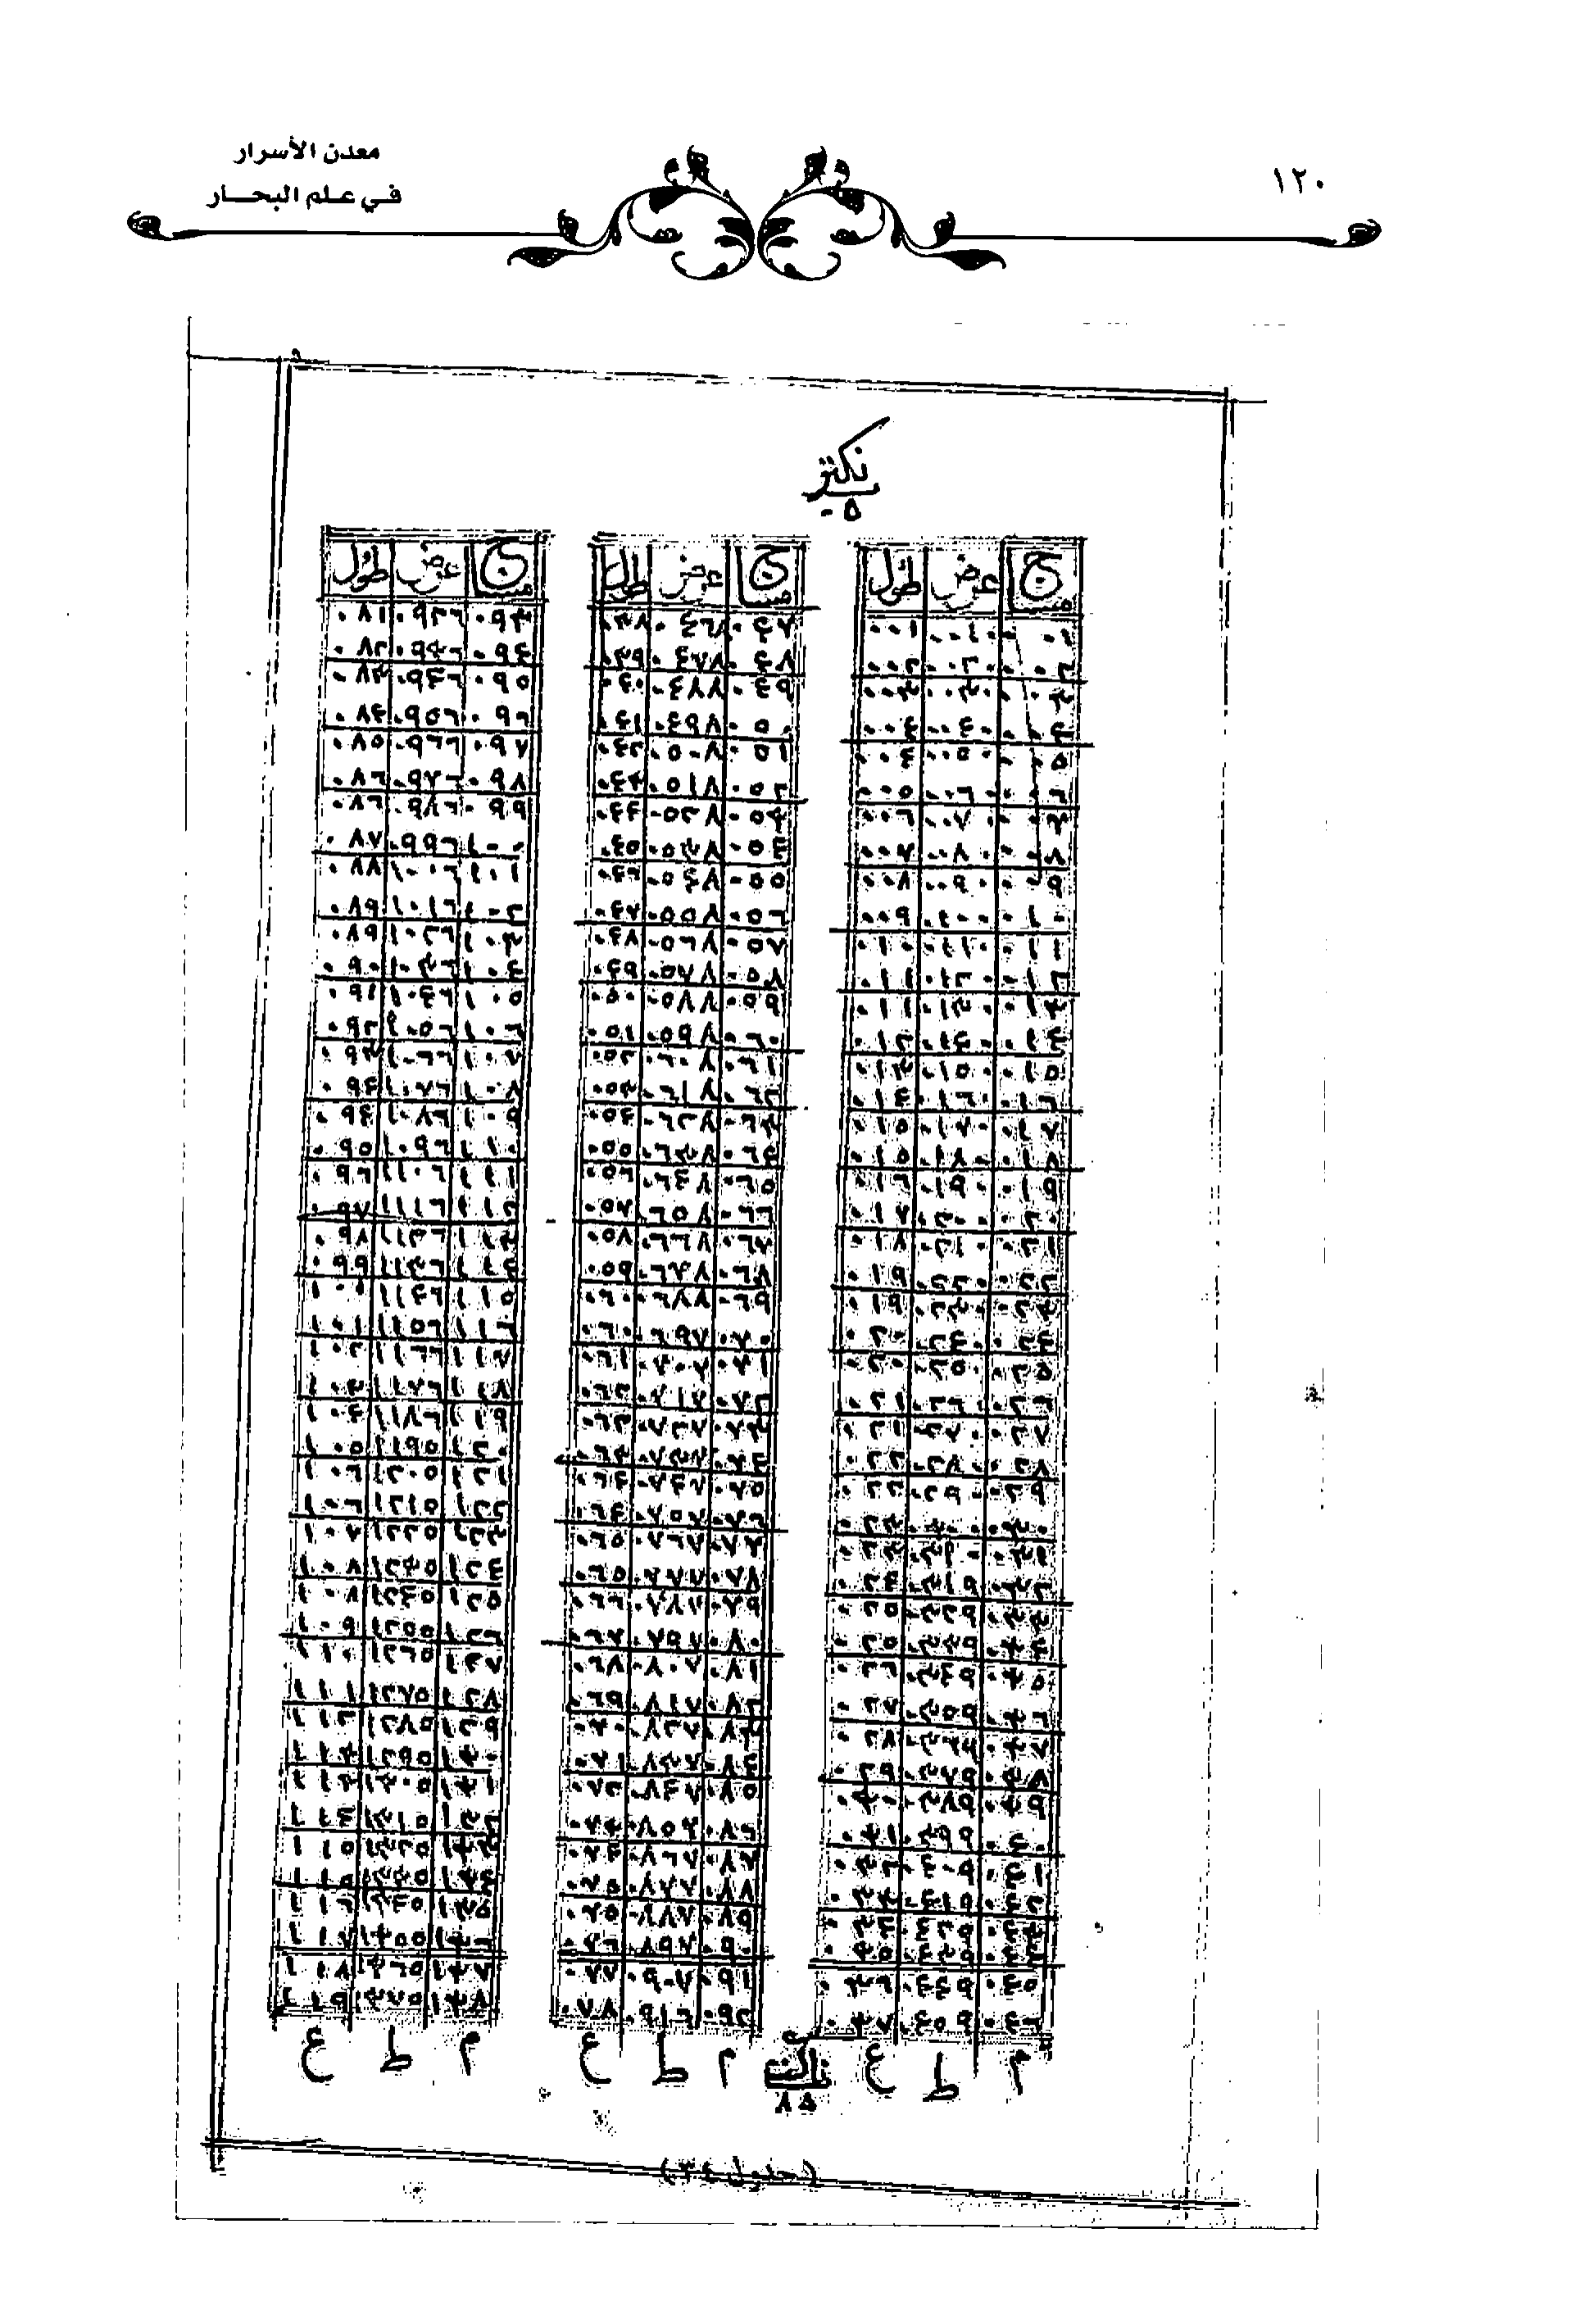 معدن الأسرار
في علم البحار
١٢٠
نكتر
٠٥
مسا ج عرض طول
٠٠١ ٠٠١٠ ٠٠١
٠٠٢ ٠٠٢٠ ٠٠٢
٠٠٣ ٠٠٣٠ ٠٠٣
٠٠٤ ٠٠٤٠ ٠٠٤
٠٠٥ ٠٠٥٠ ٠٠٤
٠٠٦ ٠٠٦٠ ٠٠٥
٠٠٧ ٠٠٧٠ ٠٠٦
٠٠٨ ٠٠٨٠ ٠٠٧
٠٠٩ ٠٠٩٠ ٠٠٨
٠١٠ ٠١٠٠ ٠٠٩
٠١١ ٠١١٠ ٠١٠
٠١٢ ٠١٢٠ ٠١١
٠١٣ ٠١٣٠ ٠١١
٠١٤ ٠١٤٠ ٠١٢
٠١٥ ٠١٥٠ ٠١٣
٠١٦ ٠١٦٠ ٠١٤
٠١٧ ٠١٧٠ ٠١٥
٠١٨ ٠١٨٠ ٠١٥
٠١٩ ٠١٩٠ ٠١٦
٠٢٠ ٠٢٠٠ ٠١٧
٠٢١ ٠٢١٠ ٠١٨
٠٢٢ ٠٢٢٠ ٠١٩
٠٢٣ ٠٢٣٠ ٠١٩
٠٢٤ ٠٢٤٠ ٠٢٠
٠٢٥ ٠٢٥٠ ٠٢٠
٠٢٦ ٠٢٦٠ ٠٢١
٠٢٧ ٠٢٧٠ ٠٢١
٠٢٨ ٠٢٨٠ ٠٢٢
٠٢٩ ٠٢٩٠ ٠٢٢
٠٣٠ ٠٣٠٠ ٠٢٣
٠٣١ ٠٣١٠ ٠٢٣
٠٣٢ ٠٣١٩ ٠٢٤
٠٣٣ ٠٣٢٩ ٠٢٥
٠٣٤ ٠٣٣٩ ٠٢٥
٠٣٥ ٠٣٤٩ ٠٢٦
٠٣٦ ٠٣٥٩ ٠٢٧
٠٣٧ ٠٣٦٩ ٠٢٨
٠٣٨ ٠٣٧٩ ٠٢٩
٠٣٩ ٠٣٨٩ ٠٣٠
٠٤٠ ٠٣٩٩ ٠٣١
٠٤١ ٠٤٠٩ ٠٣٢
٠٤٢ ٠٤١٩ ٠٣٣
٠٤٣ ٠٤٢٩ ٠٣٤
٠٤٤ ٠٤٣٩ ٠٣٥
٠٤٥ ٠٤٤٩ ٠٣٦
٠٤٦ ٠٤٥٩ ٠٣٧
م ط ع
مسا ج عرض طول
٠٤٧ ٠٤٦٨ ٠٣٨
٠٤٨ ٠٤٧٨ ٠٣٩
٠٤٩ ٠٤٨٨ ٠٤٠
٠٥٠ ٠٤٩٨ ٠٤١
٠٥١ ٠٥٠٨ ٠٤٢
٠٥٢ ٠٥١٨ ٠٤٣
٠٥٣ ٠٥٢٨ ٠٤٤
٠٥٤ ٠٥٣٨ ٠٤٥
٠٥٥ ٠٥٤٨ ٠٤٦
٠٥٦ ٠٥٥٨ ٠٤٧
٠٥٧ ٠٥٦٨ ٠٤٨
٠٥٨ ٠٥٧٨ ٠٤٩
٠٥٩ ٠٥٨٨ ٠٥٠
٠٦٠ ٠٥٩٨ ٠٥١
٠٦١ ٠٦٠٨ ٠٥٢
٠٦٢ ٠٦١٨ ٠٥٣
٠٦٣ ٠٦٢٨ ٠٥٤
٠٦٤ ٠٦٣٨ ٠٥٥
٠٦٥ ٠٦٤٨ ٠٥٦
٠٦٦ ٠٦٥٨ ٠٥٧
٠٦٧ ٠٦٦٨ ٠٥٨
٠٦٨ ٠٦٧٨ ٠٥٩
٠٦٩ ٠٦٨٨ ٠٦٠
٠٧٠ ٠٦٩٧ ٠٦٠
٠٧١ ٠٧٠٧ ٠٦١
٠٧٢ ٠٧١٧ ٠٦٢
٠٧٣ ٠٧٢٧ ٠٦٣
٠٧٤ ٠٧٣٧ ٠٦٣
٠٧٥ ٠٧٤٧ ٠٦٤
٠٧٦ ٠٧٥٧ ٠٦٤
٠٧٧ ٠٧٦٧ ٠٦٥
٠٧٨ ٠٧٧٧ ٠٦٥
٠٧٩ ٠٧٨٧ ٠٦٦
٠٨٠ ٠٧٩٧ ٠٦٧
٠٨١ ٠٨٠٧ ٠٦٨
٠٨٢ ٠٨١٧ ٠٦٩
٠٨٣ ٠٨٢٧ ٠٧٠
٠٨٤ ٠٨٣٧ ٠٧١
٠٨٥ ٠٨٤٧ ٠٧٢
٠٨٦ ٠٨٥٧ ٠٧٣
٠٨٧ ٠٨٦٧ ٠٧٤
٠٨٨ ٠٨٧٧ ٠٧٥
٠٨٩ ٠٨٨٧ ٠٧٥
٠٩٠ ٠٨٩٧ ٠٧٦
٠٩١ ٠٩٠٧ ٠٧٧
٠٩٢ ٠٩١٦ ٠٧٨
م ط ع
مسا ج عرض طول
٠٩٣ ٠٩٢٦ ٠٨١
٠٩٤ ٠٩٣٦ ٠٨٢
٠٩٥ ٠٩٤٦ ٠٨٣
٠٩٦ ٠٩٥٦ ٠٨٤
٠٩٧ ٠٩٦٦ ٠٨٥
٠٩٨ ٠٩٧٦ ٠٨٦
٠٩٩ ٠٩٨٦ ٠٨٦
١٠٠ ٠٩٩٦ ٠٨٧
١٠١ ١٠٠٦ ٠٨٨
١٠٢ ١٠١٦ ٠٨٩
١٠٣ ١٠٢٦ ٠٨٩
١٠٤ ١٠٣٦ ٠٩٠
١٠٥ ١٠٤٦ ٠٩١
١٠٦ ١٠٥٦ ٠٩٢
١٠٧ ١٠٦٦ ٠٩٣
١٠٨ ١٠٧٦ ٠٩٤
١٠٩ ١٠٨٦ ٠٩٤
١١٠ ١٠٩٦ ٠٩٥
١١١ ١١٠٦ ٠٩٦
١١٢ ١١١٦ ٠٩٧
١١٣ ١١٢٦ ٠٩٨
١١٤ ١١٣٦ ٠٩٩
١١٥ ١١٤٦ ١٠٠
١١٦ ١١٥٦ ١٠١
١١٧ ١١٦٦ ١٠٢
١١٨ ١١٧٦ ١٠٣
١١٩ ١١٨٦ ١٠٤
١٢٠ ١١٩٥ ١٠٥
١٢١ ١٢٠٥ ١٠٦
١٢٢ ١٢١٥ ١٠٦
١٢٣ ١٢٢٥ ١٠٧
١٢٤ ١٢٣٥ ١٠٨
١٢٥ ١٢٤٥ ١٠٨
١٢٦ ١٢٥٥ ١٠٩
١٢٧ ١٢٦٥ ١١٠
١٢٨ ١٢٧٥ ١١١
١٢٩ ١٢٨٥ ١١٢
١٣٠ ١٢٩٥ ١١٣
١٣١ ١٣٠٥ ١١٣
١٣٢ ١٣١٥ ١١٤
١٣٣ ١٣٢٥ ١١٥
١٣٤ ١٣٣٥ ١١٥
١٣٥ ١٣٤٥ ١١٦
١٣٦ ١٣٥٥ ١١٧
١٣٧ ١٣٦٥ ١١٨
١٣٨ ١٣٧٥ ١١٩
م ط ع
٨٥
(جدول ٣٤)